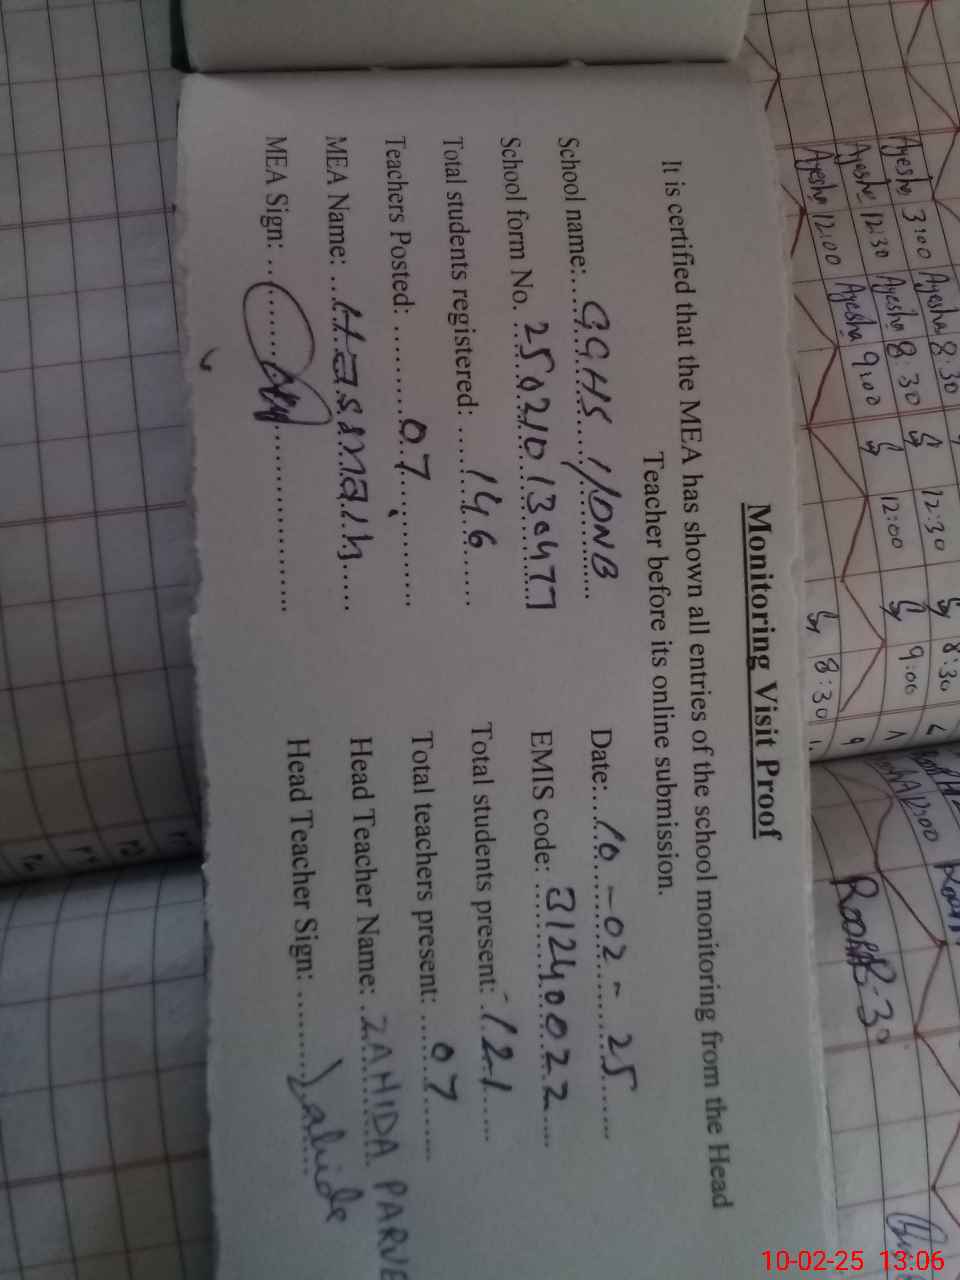 Ayesha 3:00 Ayesha 8:30 12:30 8:30
Ayesha 12:30 Ayesha 8:30 12:00 9:00
Ayesha 12:00 Ayesha 9:00 8:30
Monitoring Visit Proof
It is certified that the MEA has shown all entries of the school monitoring from the Head
Teacher before its online submission.
School name: GGHS 1/DNB Date: 10-02-25
School form No. 250210130477 EMIS code: 31240022
Total students registered: 146 Total students present: 121
Teachers Posted: 07 Total teachers present: 07
MEA Name: Hasnain Head Teacher Name: ZAHIDA PARVE
MEA Sign: Head Teacher Sign: Zahida
10-02-25 13:06